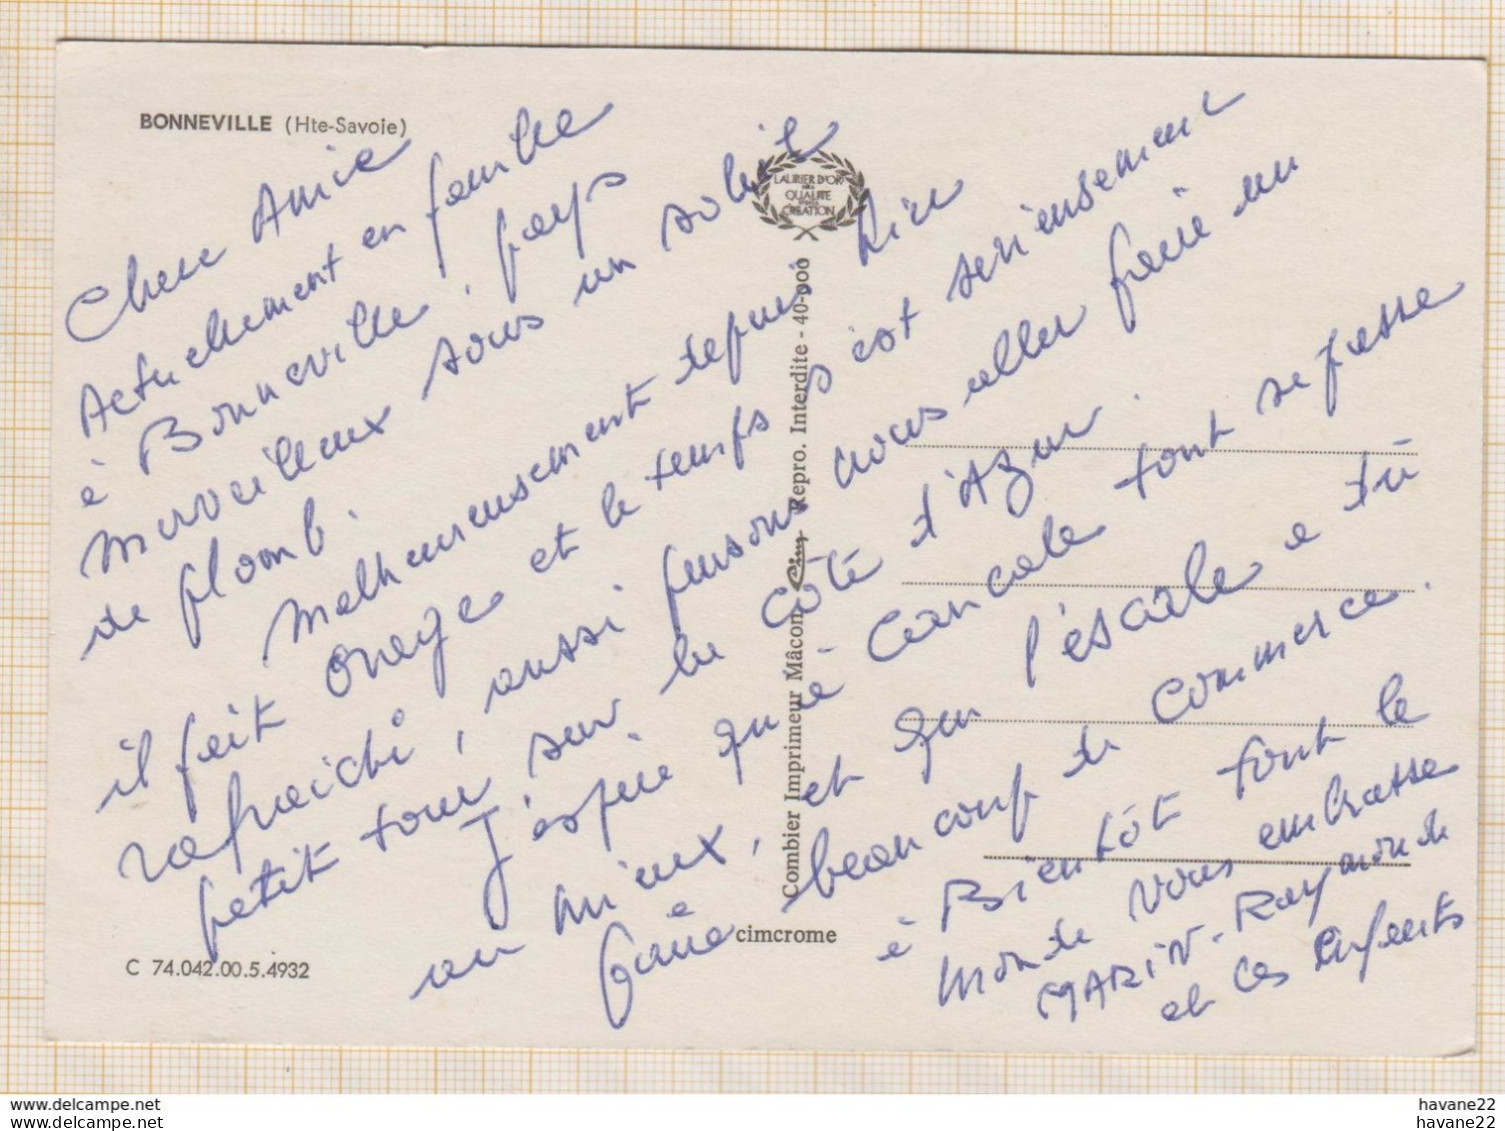 BONNEVILLE (Hte-Savoie)
Chere Amie
Actuellement en famille
à Bonneville, pays
merveilleux sous un soleil
de plomb.
Malheureusement depuis hier
il fait orage et le temps s'est serieusement
rafraichi, aussi pensons nous aller faire un
petit tour sur la côte d'Azur.
J'éspère qu'à Cancale tout se passe
au mieux, et que l'éscale a dû
faire beaucoup de commerce.
à Bientôt tout le
monde vous embrasse
MARIN-Raymonde
et les Enfants
LAURIER D'OR
QUALITE
CREATION
Combier Imprimeur Mâcon Cim Repro. Interdite - 40-000
cimcrome
C 74.042.00.5.4932
havane22
havane22
havane22
havane22